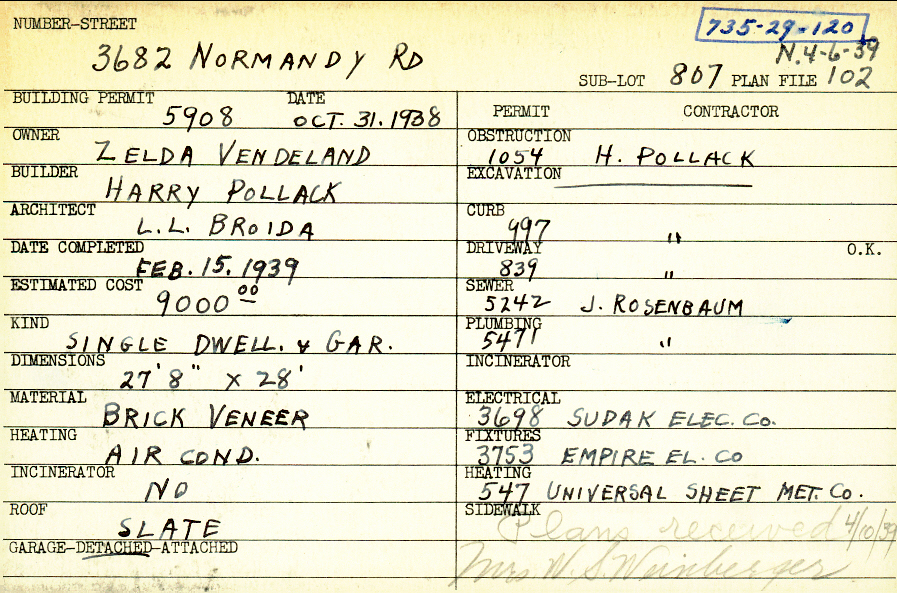 NUMBER-STREET
735-29-120
3682 NORMANDY RD
N.4-6-39
SUB-LOT 807 PLAN FILE 102
BUILDING PERMIT DATE
5908 OCT. 31. 1938
OWNER
ZELDA VENDELAND
BUILDER
HARRY POLLACK
ARCHITECT
L.L. BROIDA
DATE COMPLETED
FEB. 15. 1939
ESTIMATED COST
9000 00
KIND
SINGLE DWELL. & GAR.
DIMENSIONS
27' 8" X 28'
MATERIAL
BRICK VENEER
HEATING
AIR COND.
INCINERATOR
NO
ROOF
SLATE
GARAGE-DETACHED-ATTACHED
PERMIT CONTRACTOR
OBSTRUCTION
1054 H. POLLACK
EXCAVATION
CURB
997 "
DRIVEWAY O.K.
839 "
SEWER
5242 J. ROSENBAUM
PLUMBING
5471 "
INCINERATOR
ELECTRICAL
3698 SUDAK ELEC. CO.
FIXTURES
3753 EMPIRE EL. CO
HEATING
547 UNIVERSAL SHEET MET. CO.
SIDEWALK
Plans received 4/10/39
Mrs W. S. Weinberger